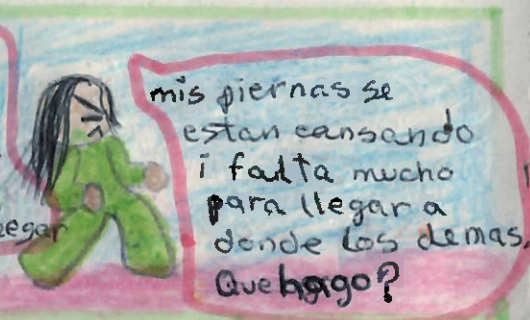 mis piernas se
estan cansando
i falta mucho
para llegar a
donde los demas.
Que hago?
egar